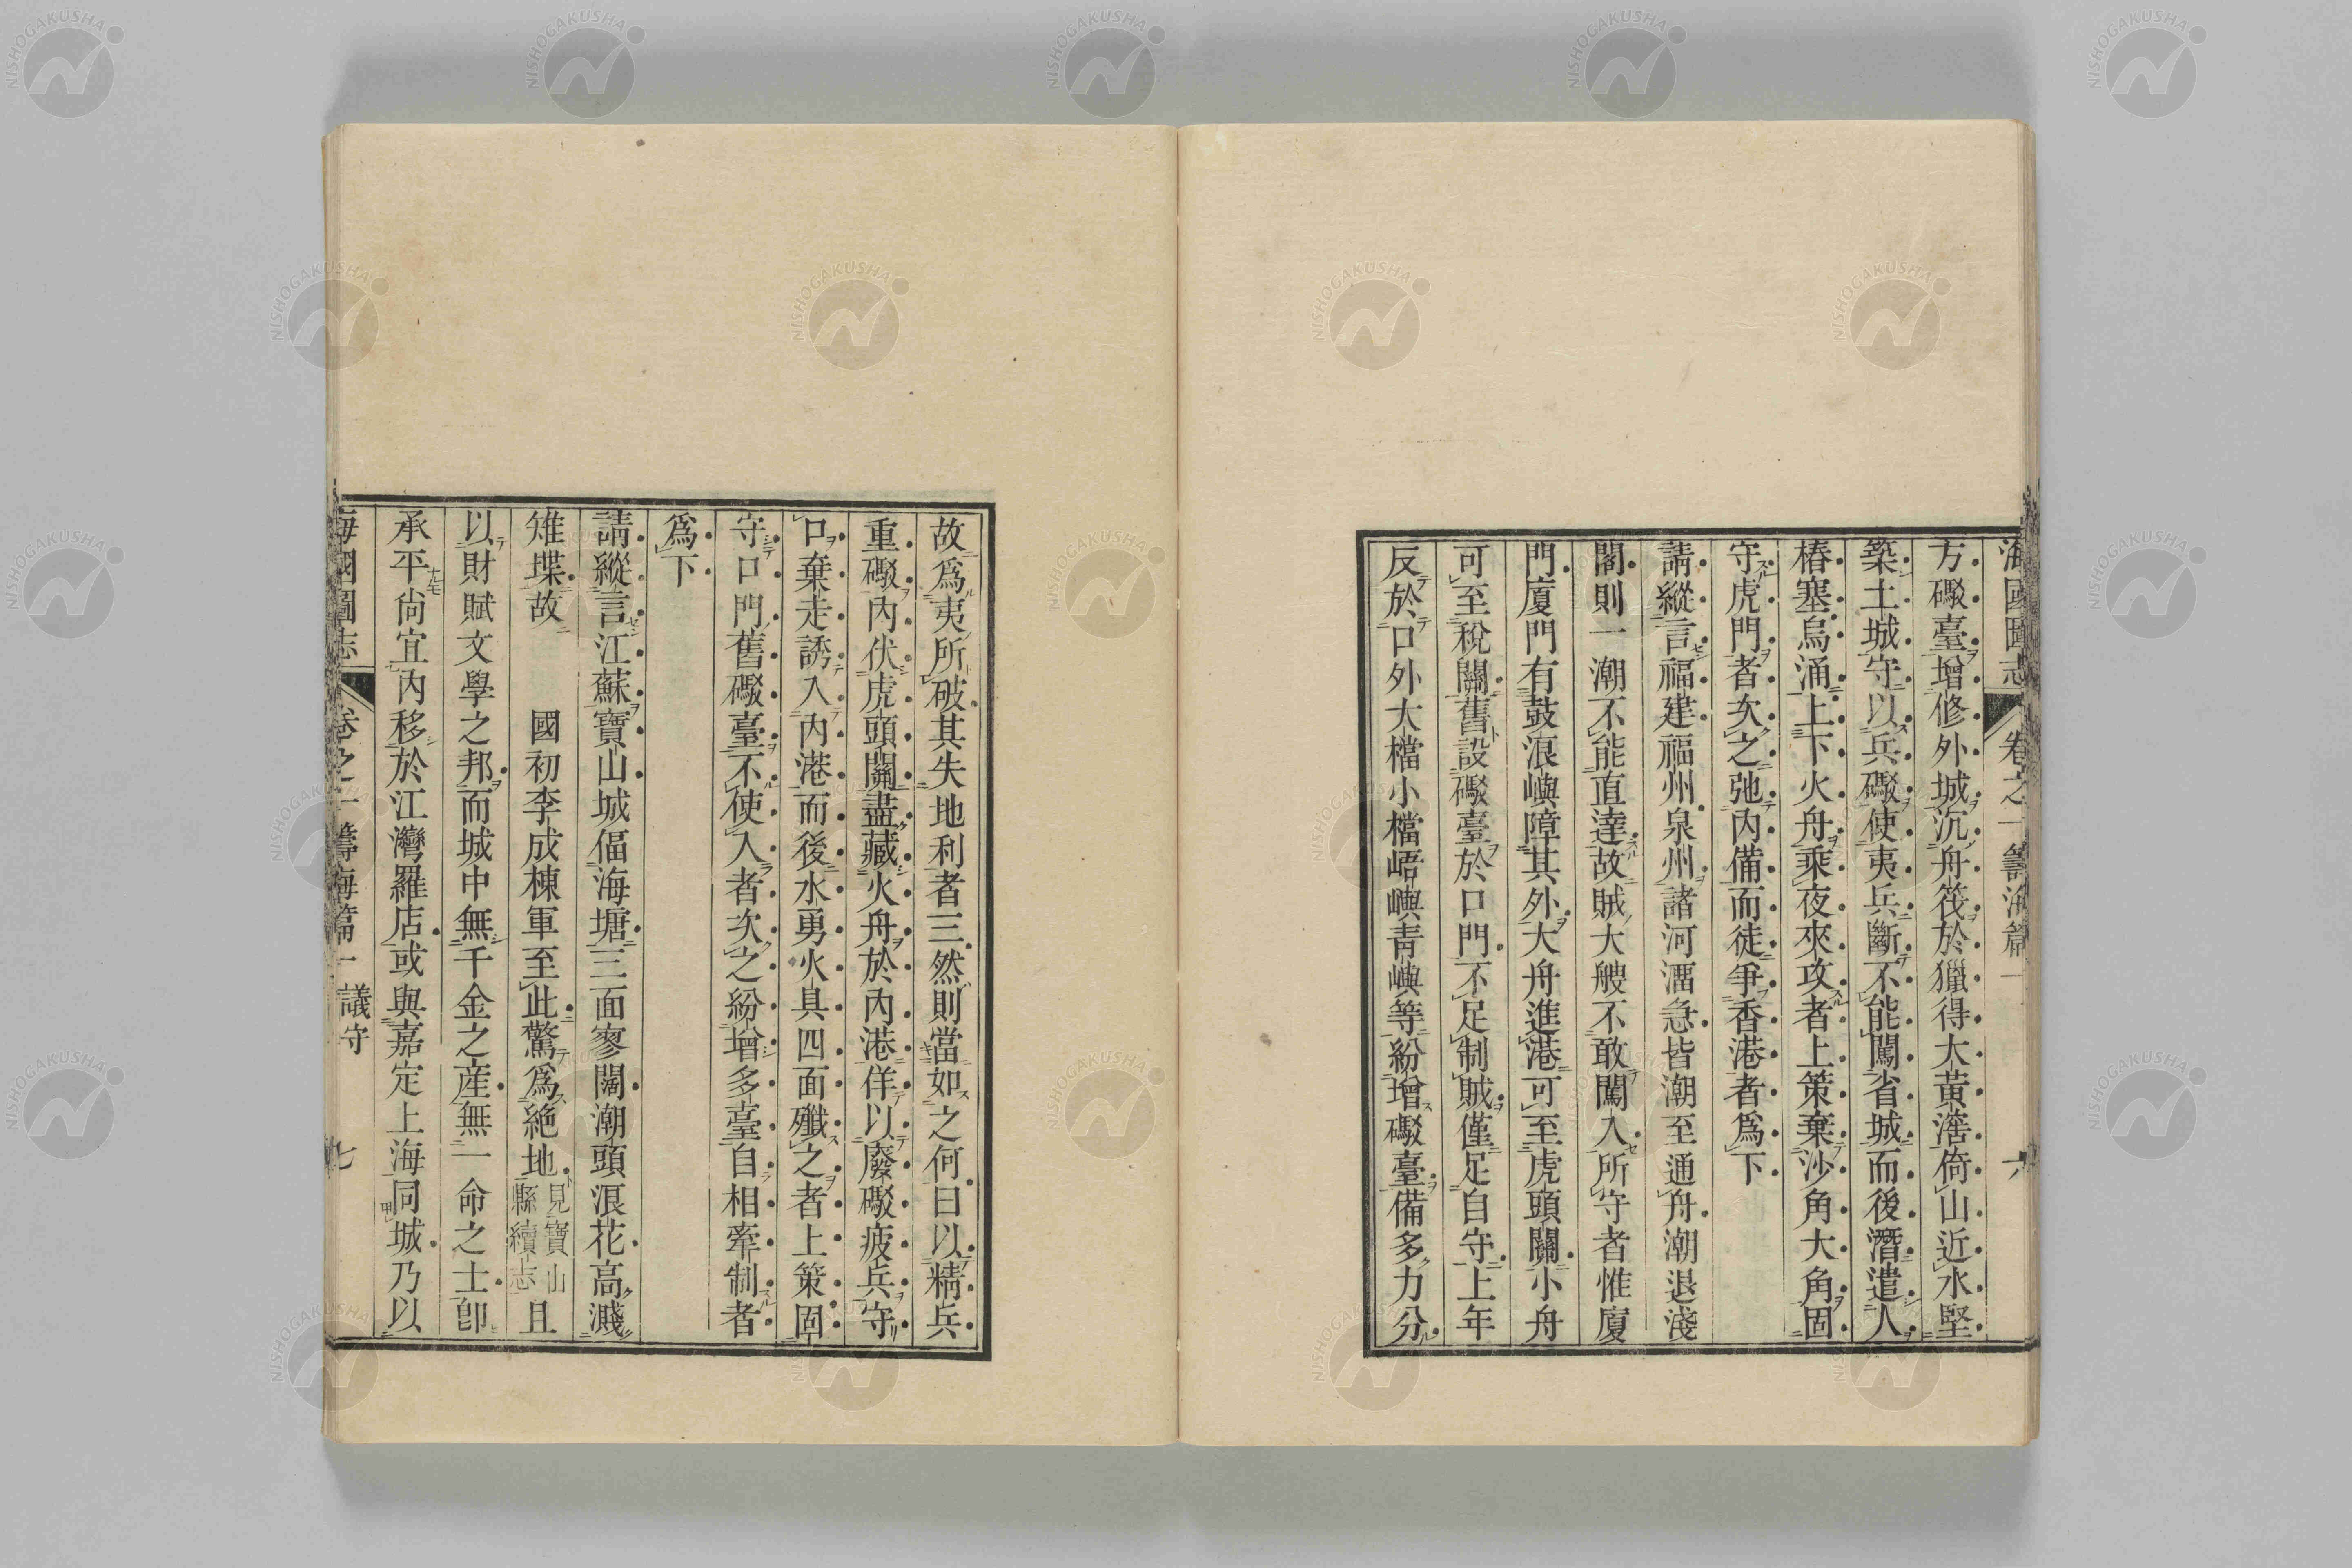 海國圖志 卷之一 籌海篇一 六
方礮臺增修外城沉舟筏於獵得大黃滘倚山近水堅
築土城守以兵礮使夷兵斷不能闖省城而後潛遣人
樁塞烏涌上下火舟乘夜來攻者上策棄沙角大角固
守虎門者次之弛內備而徒爭香港者爲下
請縱言福建福州泉州諸河湍急皆潮至通舟潮退淺
閣則一潮不能直達故賊大艘不敢闖入所守者惟廈
門廈門有鼓浪嶼障其外大舟進港可至虎頭關小舟
可至稅關舊設礮臺於口門不足制賊僅足自守上年
反於口外大檔小檔峿嶼靑嶼等紛增礮臺備多力分
故爲夷所破其失地利者三然則當如之何曰以精兵
重礮內伏虎頭關盡藏火舟於內港佯以廢礮疲兵守
口棄走誘入內港而後水勇火具四面殲之者上策固
守口門舊礮臺不使入者次之紛增多臺自相牽制者
爲下
請縱言江蘇寶山城偪海塘三面寥闊潮頭浪花高濺
雉堞故 國初李成棟軍至此驚爲絶地見寶山縣續志且
以財賦文學之邦而城中無千金之産無一命之士卽
承平尙宜內移於江灣羅店或與嘉定上海同城乃以
海國圖志 卷之一 籌海篇一 議守 七
NISHOGAKUSHA